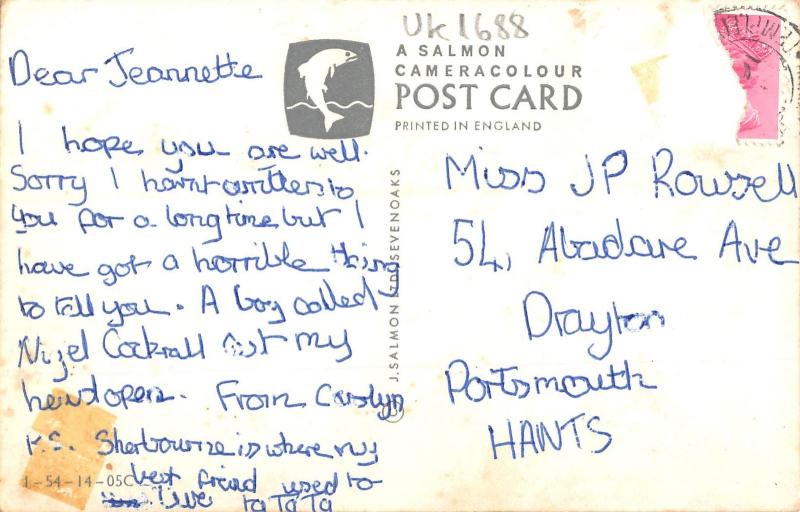 Uk1688
A SALMON
CAMERACOLOUR
POST CARD
PRINTED IN ENGLAND
Dear Jeannette
I hope you are well.
Sorry I havnt written to
you for a long time but I
have got a horrible thing
to tell you. A boy called
Nigel Cockrall cut my
head open. From Carolyn
P.S. Sherbourne is where my
best friend used to
live ta Ta Ta
1-54-14-05C
J. SALMON LTD SEVENOAKS
©
Miss JP Rowsell
54, Abadare Ave
Drayton
Portsmouth
HANTS